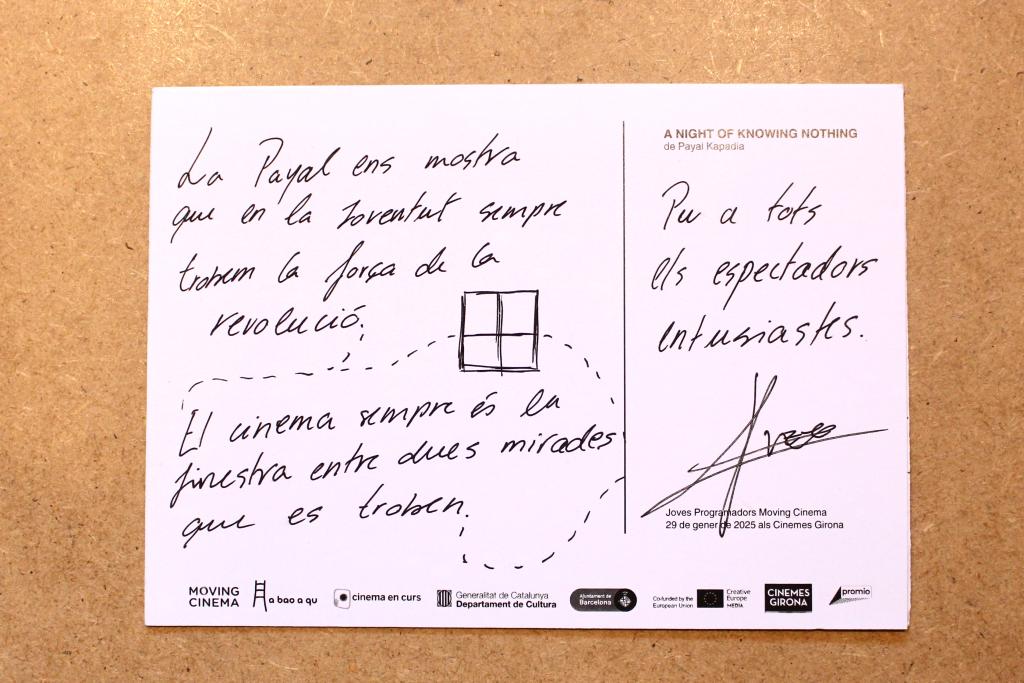 La Payal ens mostra
que en la Joventut sempre
trobem la força de la
revolució.
El cinema sempre és la
finestra entre dues mirades
que es troben.
A NIGHT OF KNOWING NOTHING
de Payal Kapadia
Per a tots
els espectadors
entusiastes.
Joves Programadors Moving Cinema
29 de gener de 2025 als Cinemes Girona
MOVING
CINEMA
a bao a qu
cinema en curs
Generalitat de Catalunya
Departament de Cultura
Ajuntament de
Barcelona
Co-funded by the
European Union
Creative
Europe
MEDIA
CINEMES
GIRONA
promio